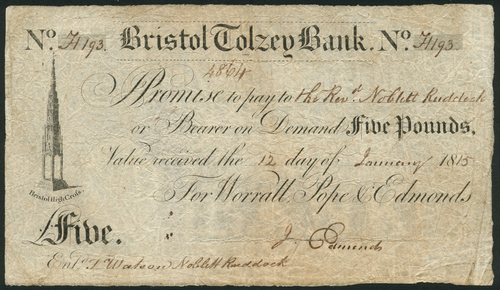 No. H193. Bristol Tolzey Bank. No. H193.
4864
I Promise to pay to the Revd. Noblett Ruddock
or Bearer on Demand Five Pounds,
Value received the 12 day of January 1815
Bristol High Cross.
For Worrall, Pope & Edmonds
£Five.
J Edmonds
Entd. J Watson Noblett Ruddock